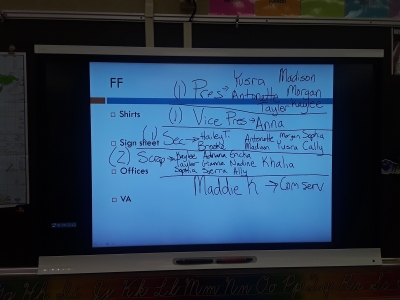 FF
Yusra Madison
(1) Pres→ Antonette Morgan
Taylor Kaylee
□ Shirts
(1) Vice Pres→ Anna
□ Sign sheet
(1) Sec→ Hailey T. Antonette Morgan Sophia
Brooke Madison Yusra Cally
(2) Scrap→ Kaylee Adriana Ericka
Taylor Gianna Nadine Khalia
Sophia Sierra Ally
□ Offices
Maddie K → Com Serv
□ VA